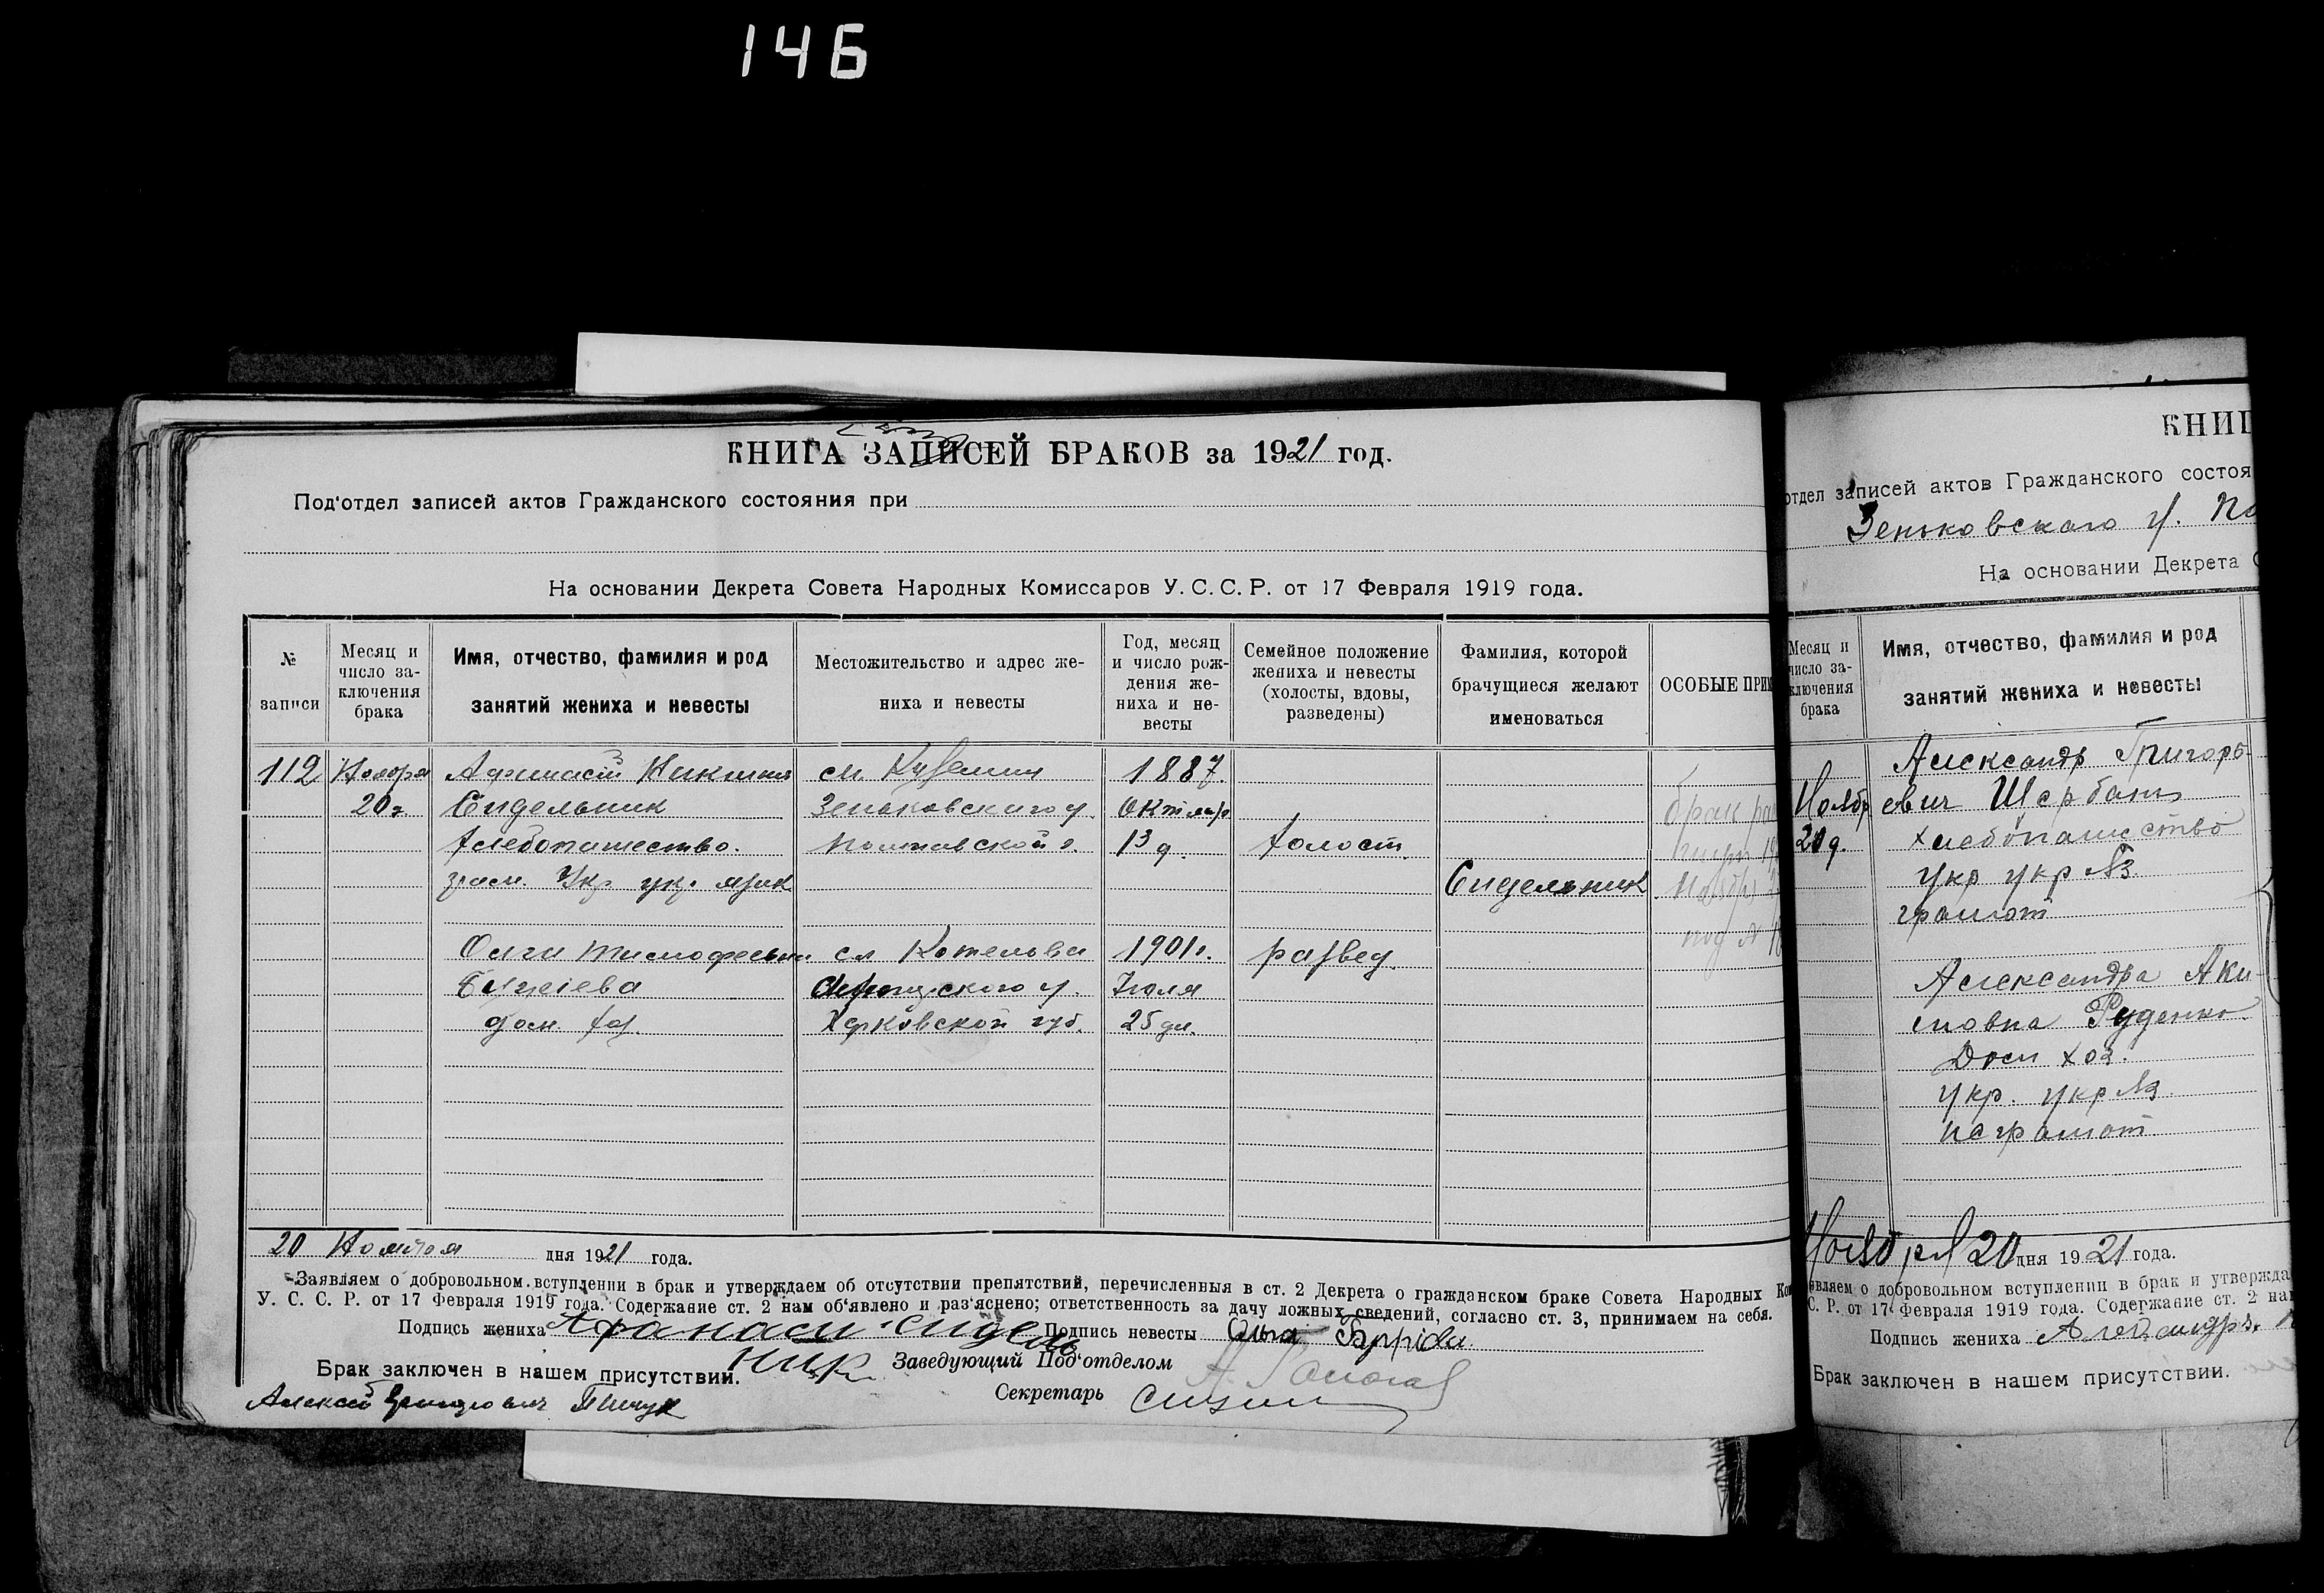 146
КНИГА ЗАПИСЕЙ БРАКОВ за 1921 год.
Под'отдел записей актов Гражданского состояния при
На основании Декрета Совета Народных Комиссаров У. С. С. Р. от 17 Февраля 1919 года.
№ записи
Месяц и число заключения брака
Имя, отчество, фамилия и род занятий жениха и невесты
Местожительство и адрес жениха и невесты
Год, месяц и число рождения жениха и невесты
Семейное положение жениха и невесты (холосты, вдовы, разведены)
Фамилия, которой брачущиеся желают именоваться
ОСОБЫЕ ПРИМ
112
Ноября
20
Сидельник
Хлебопашество.
Укр. укр. язык
Зеньковского у.
Полтавской г.
1887
13 д.
Холост.
Сидельник
брак
Ольги Тимофеевн
дом. хоз.
сл Котельва
Харковской губ.
1901г.
Июля
25 дн.
развед.
20
дня 1921 года.
Заявляем о добровольном вступлении в брак и утверждаем об отсутствии препятствий, перечисленныя в ст. 2 Декрета о гражданском браке Совета Народных Ко
У. С. С. Р. от 17 Февраля 1919 года. Содержание ст. 2 нам об'явлено и раз'яснено; ответственность за дачу ложных сведений, согласно ст. 3, принимаем на себя.
Подпись жениха Афанаси Сидель
ник
Подпись невесты Ольга
Брак заключен в нашем присутствии.
Заведующий Под'отделом
Секретарь
КНИГ
отдел записей актов Гражданского состоя
Зеньковскаго у. По
На основании Декрета С
Месяц и число заключения брака
Имя, отчество, фамилия и род занятий жениха и невесты
Александр Григорь-
Ноябр
евич Щербань
20 д.
хлебопашество
укр укр яз
грамот
Александра Аки-
мовна Руденко
Дом хоз.
укр. укр яз.
неграмот
Ноября 20 дня 1921 года.
являем о добровольном вступлении в брак и утвержда
С. Р. от 17 Февраля 1919 года. Содержание ст. 2 на
Подпись жениха Александръ
Брак заключен в нашем присутствии.